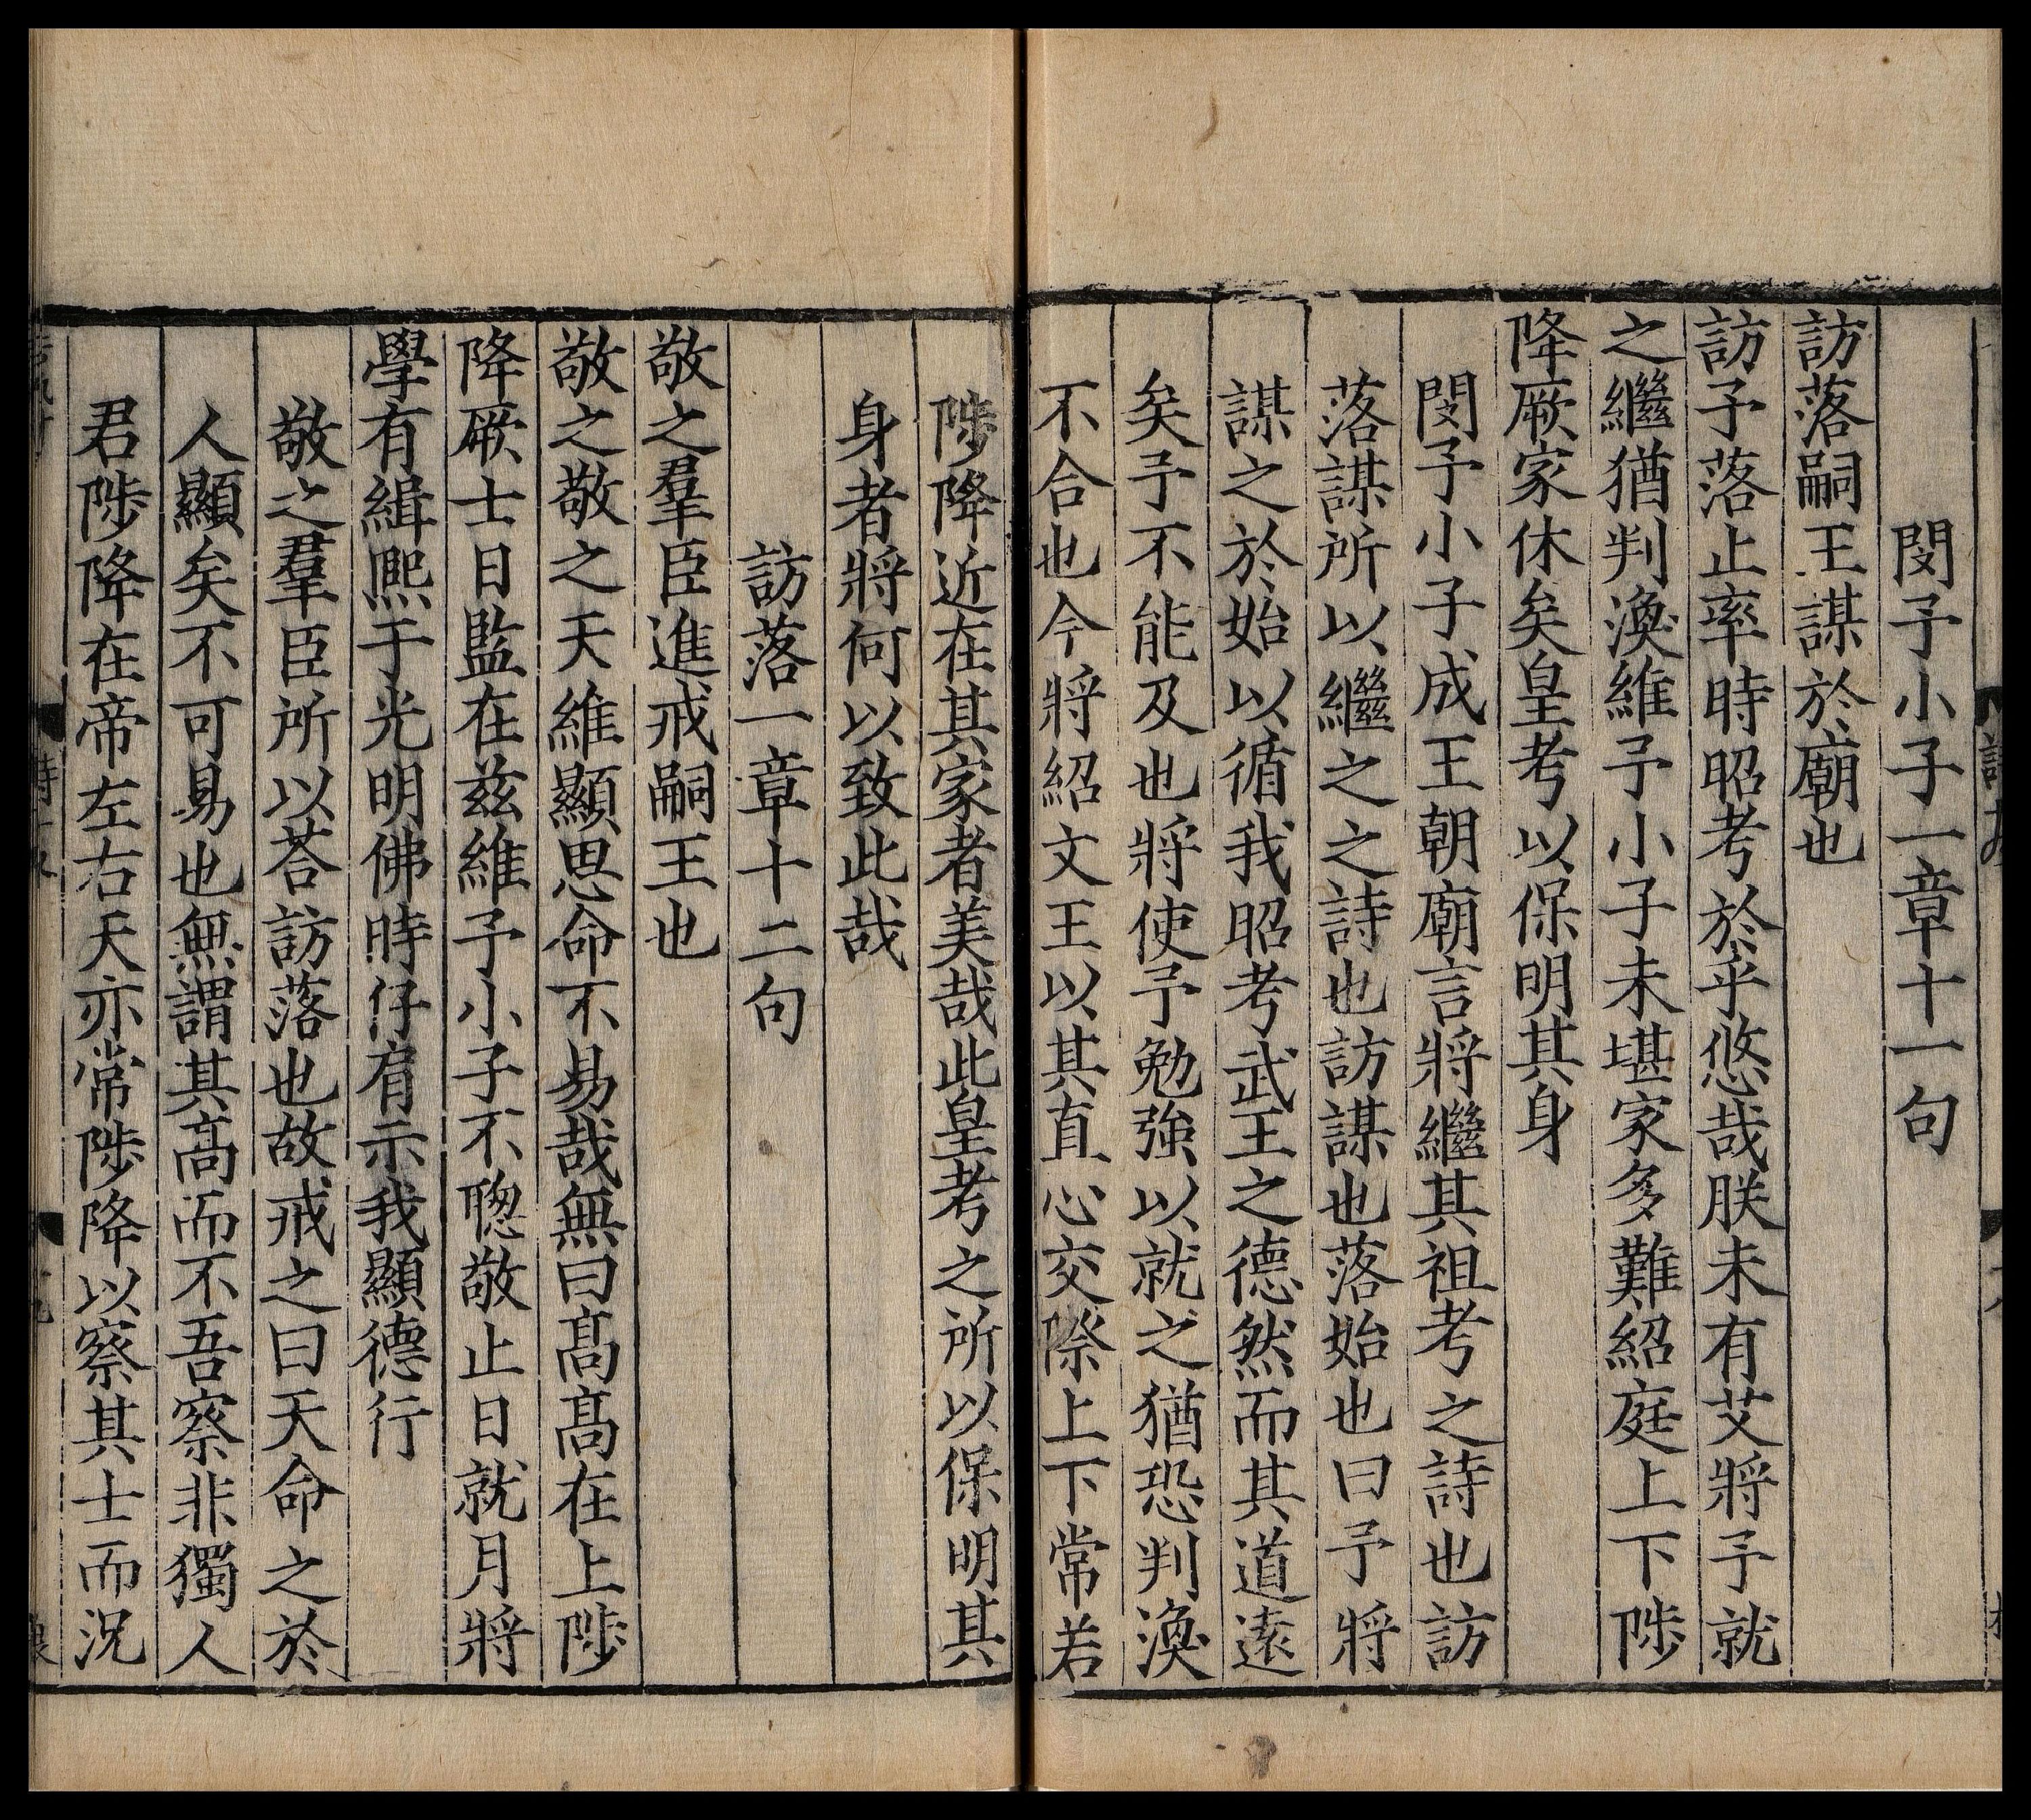 閔予小子一章十一句
訪落嗣王謀於廟也
訪予落止率時昭考於乎悠哉朕未有艾將予就
之繼猶判渙維予小子未堪家多難紹庭上下陟
降厥家休矣皇考以保明其身
閔予小子成王朝廟言將繼其祖考之詩也訪
落謀所以繼之之詩也訪謀也落始也曰予將
謀之於始以循我昭考武王之德然而其道遠
矣予不能及也將使予勉強以就之猶恐判渙
不合也今將紹文王以其直心交際上下常若
陟降近在其家者美哉此皇考之所以保明其
身者將何以致此哉
訪落一章十二句
敬之羣臣進戒嗣王也
敬之敬之天維顯思命不易哉無曰髙髙在上陟
降厥士日監在茲維予小子不聦敬止日就月將
學有緝熈于光明佛時仔肩示我顯德行
敬之羣臣所以荅訪落也故戒之曰天命之於
人顯矣不可易也無謂其髙而不吾察非獨人
君陟降在帝左右天亦常陟降以察其士而況